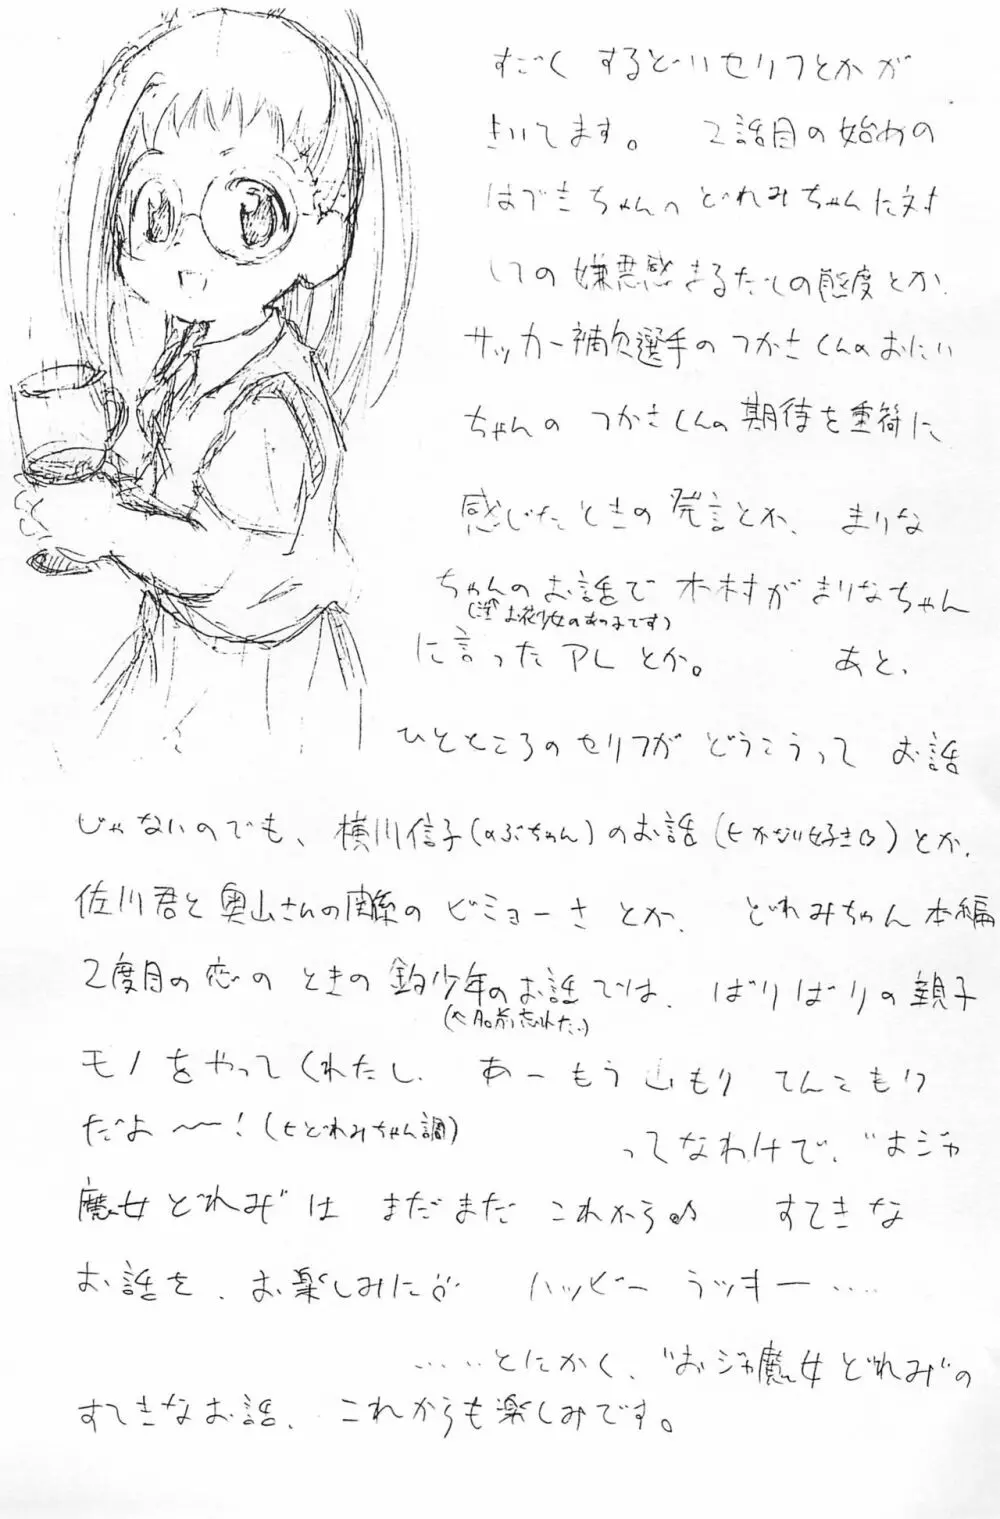 すごく するどいセリフとかが
きいてます。 2話目の始めの
はづきちゃんの どれみちゃんに対
しての嫌悪感まるだしの態度とか、
サッカー補欠選手の つかさくんのおにい
ちゃんの つかさくんの期待を重荷に
感じたときの発言とか、 まりな
ちゃんのお話で 木村がまりなちゃん
(注 お花少女のあの子です)
に言ったアレとか。 あと、
ひとところのセリフが どうこうって お話
じゃないのでも、横川信子(のぶちゃん)のお話(←かなり好き)とか、
佐川君と奥山さんの関係の ビミョーさ とか、 どれみちゃん本編
2度目の恋の ときの 釣少年のお話では、 ばりばりの親子
(↑名前忘れた)
モノをやってくれたし、 あーもう 山もり てんこもり
だよ〜〜!(←どれみちゃん調)
ってなわけで、"おジャ
魔女どれみ"は まだまだ これから♪ すてきな
お話を、お楽しみに♡ ハッピー ラッキー‥‥
‥‥‥とにかく、"おジャ魔女どれみ"の
すてきなお話、これからも楽しみです。